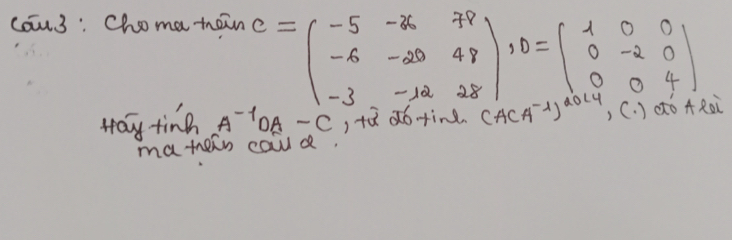 Câu 3 : Cho ma trận C = ( -5 -36 78 ) , D = ( 1 0 0 )
-6 -20 48 0 -2 0
-3 -12 28 0 0 4
Hãy tính A⁻¹DA - C , từ đó tính (ACA⁻¹)²⁰²⁴ , (.) đó A là
ma trận câu 2 .